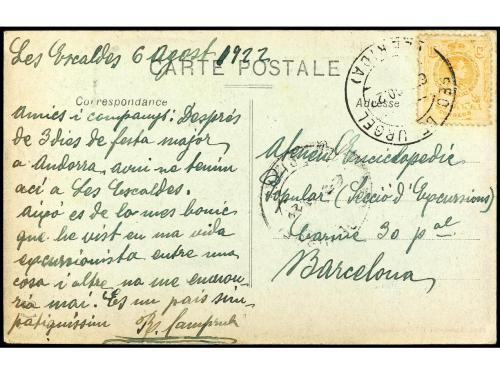 Les Escaldes 6 agost 1922
CARTE POSTALE
Correspondance
Adresse
SEO DE URGEL
(LERIDA)
Amics i companys: Després
de 3 dies de festa major
a Andorra, avui ne tenim
aci a Les Escaldes.
Aixó es de lo mes bonic
que he vist en ma vida
excursionista entre una
cosa i altre
mai. Es un pais sim
patiquissim
Ateneu Enciclopedic
Popular (Secció d'Excursions)
Carme 30 pal
Barcelona